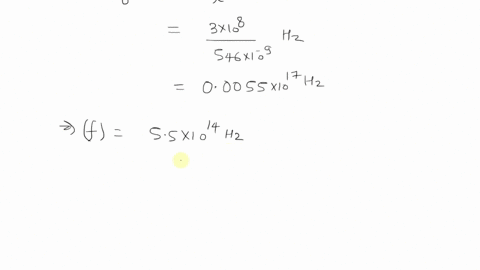 = 3×10⁸ / 546×10⁻⁹ Hz
= 0.0055×10¹⁷ Hz
⇒ (f) = 5.5×10¹⁴ Hz